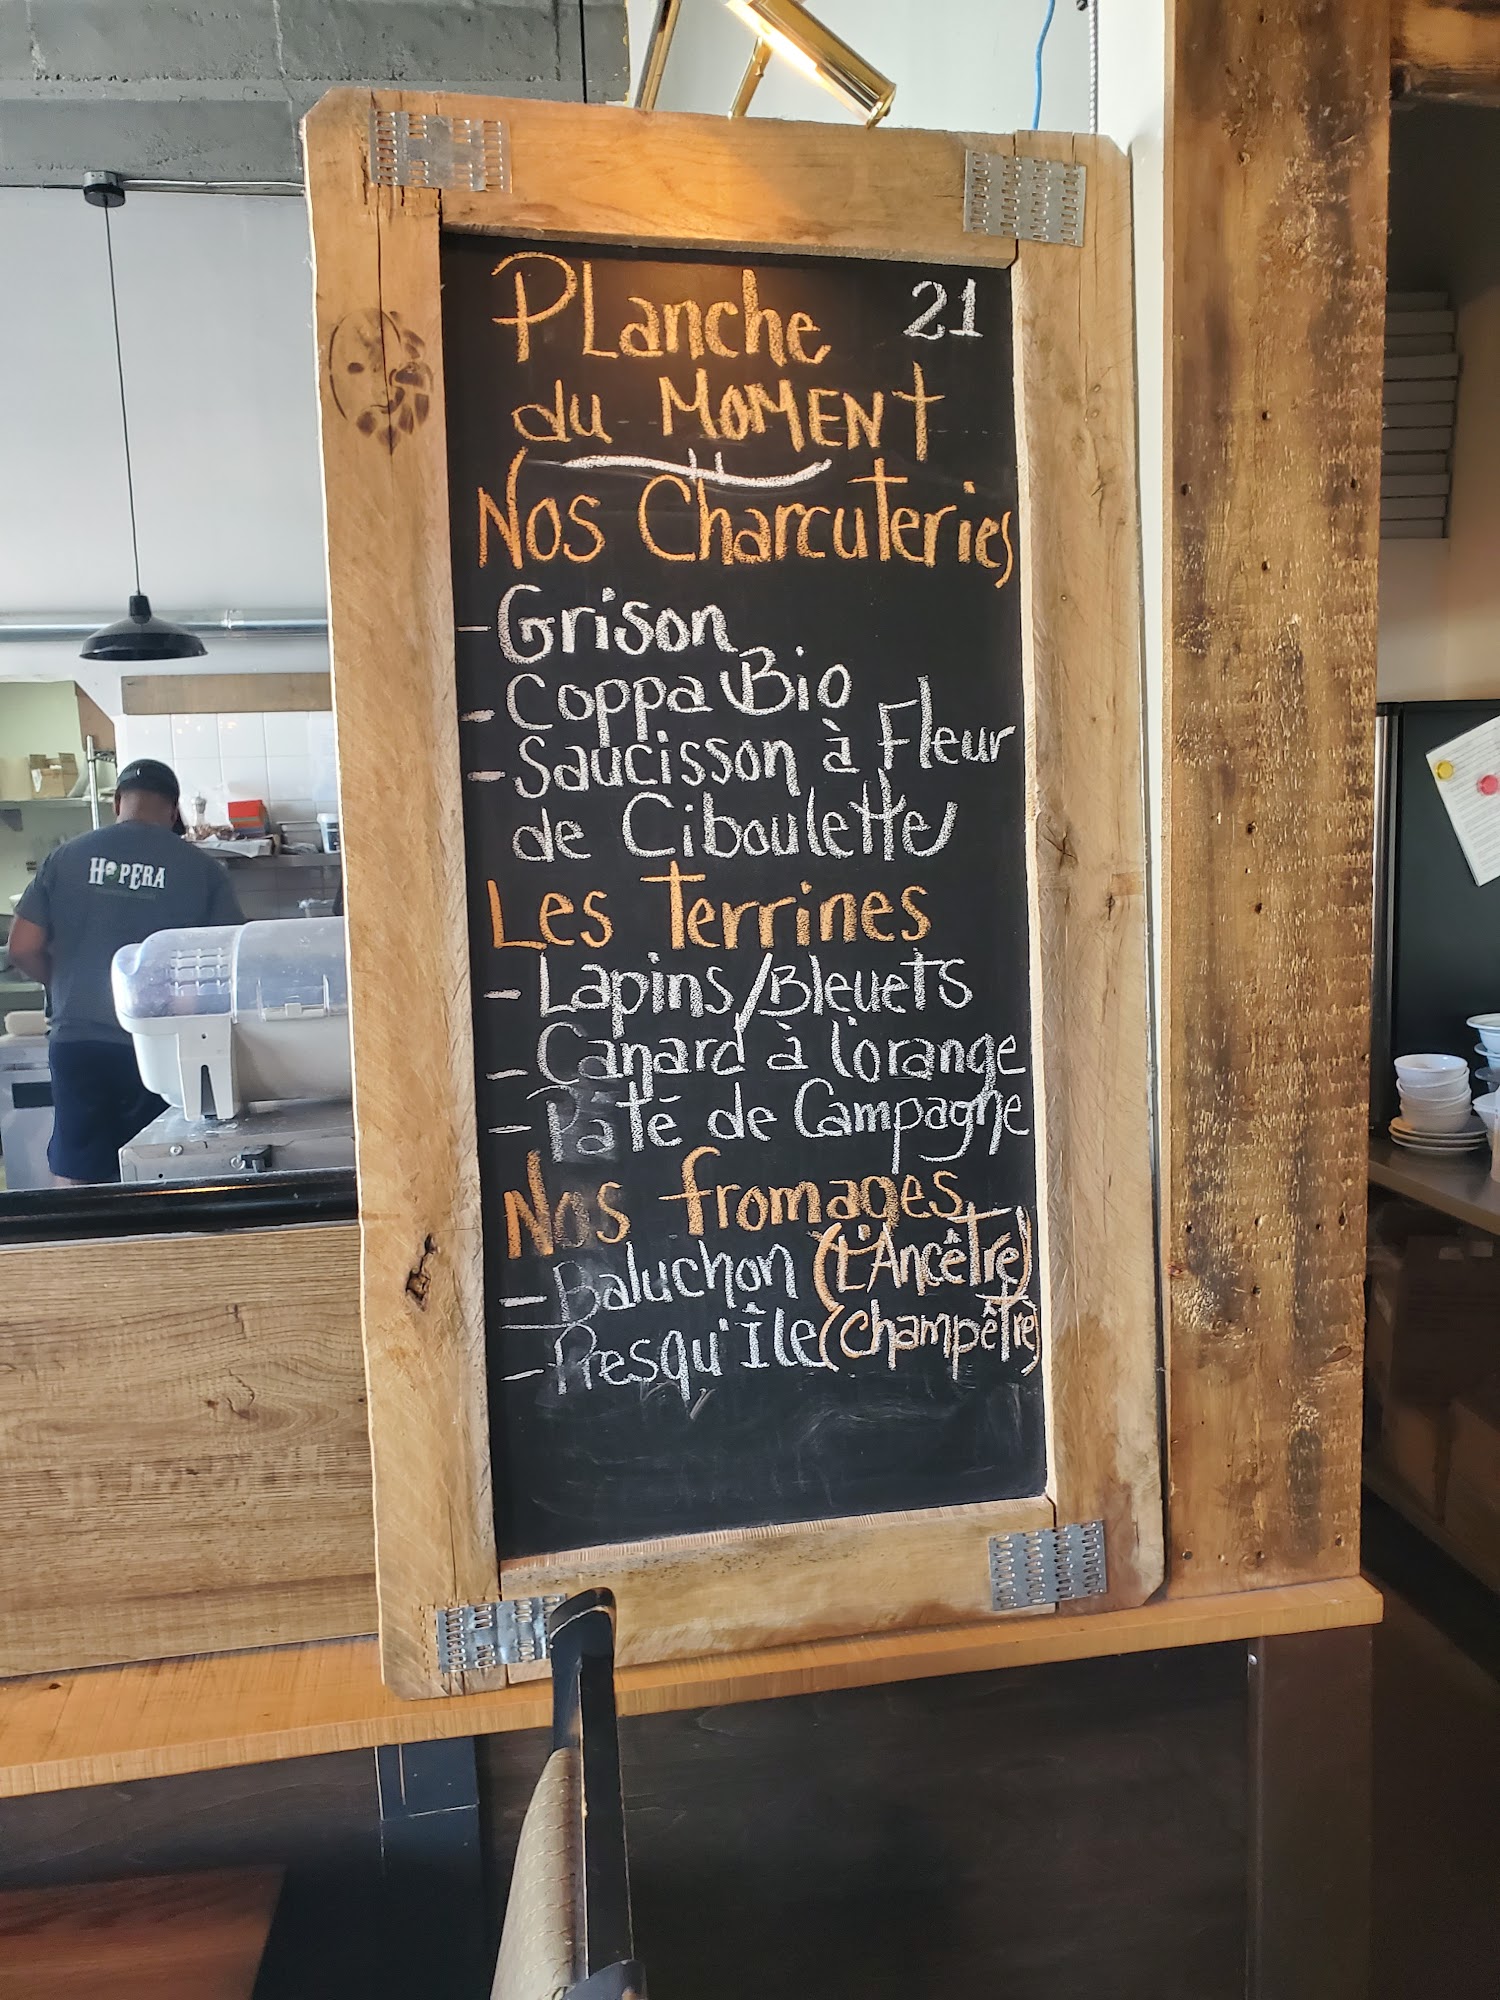 PLanche 21
du MOMENt
Nos Charcuteries
- Grison
- Coppa Bio
- Saucisson à Fleur
de Ciboulette
Les Terrines
- Lapins/Bleuets
- Canard à l'orange
- Pâté de Campagne
Nos fromages
- Baluchon (L'Ancêtre)
- Presqu'Île (Champêtre)
HOPERA